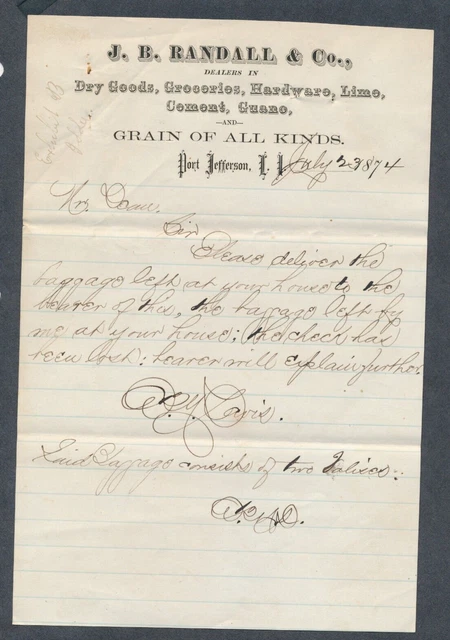 J. B. RANDALL & Co.,
DEALERS IN
Dry Goods, Groceries, Hardware, Lime,
Cement, Guano,
—AND—
GRAIN OF ALL KINDS.
Port Jefferson, L. I. July 23 1874
Exhibit B
Mr. Doane.
Sir
Please deliver the
baggage left at your house to the
bearer of this, the baggage left by
me at your house; the check has
been lost: bearer will explain further.
Davis.
Said Baggage consists of two Valises: